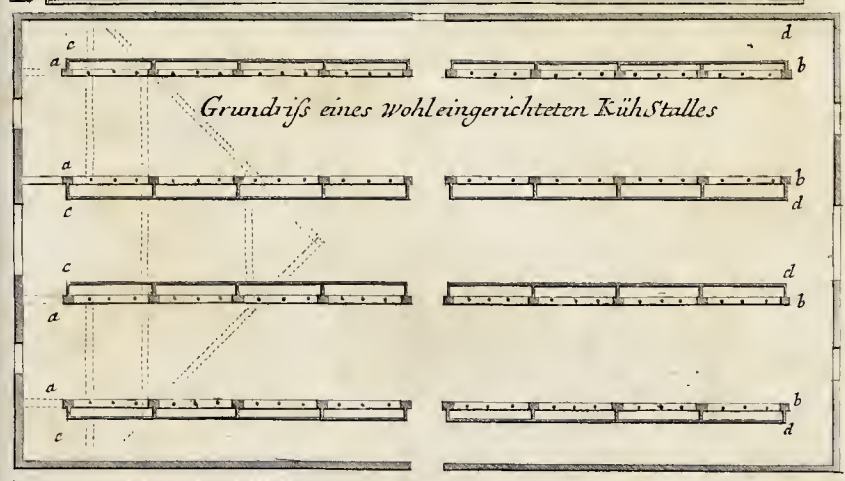 c d
a b
Grundriſs eines wohleingerichteten KühStalles
a b
c d
c d
a b
a b
c d